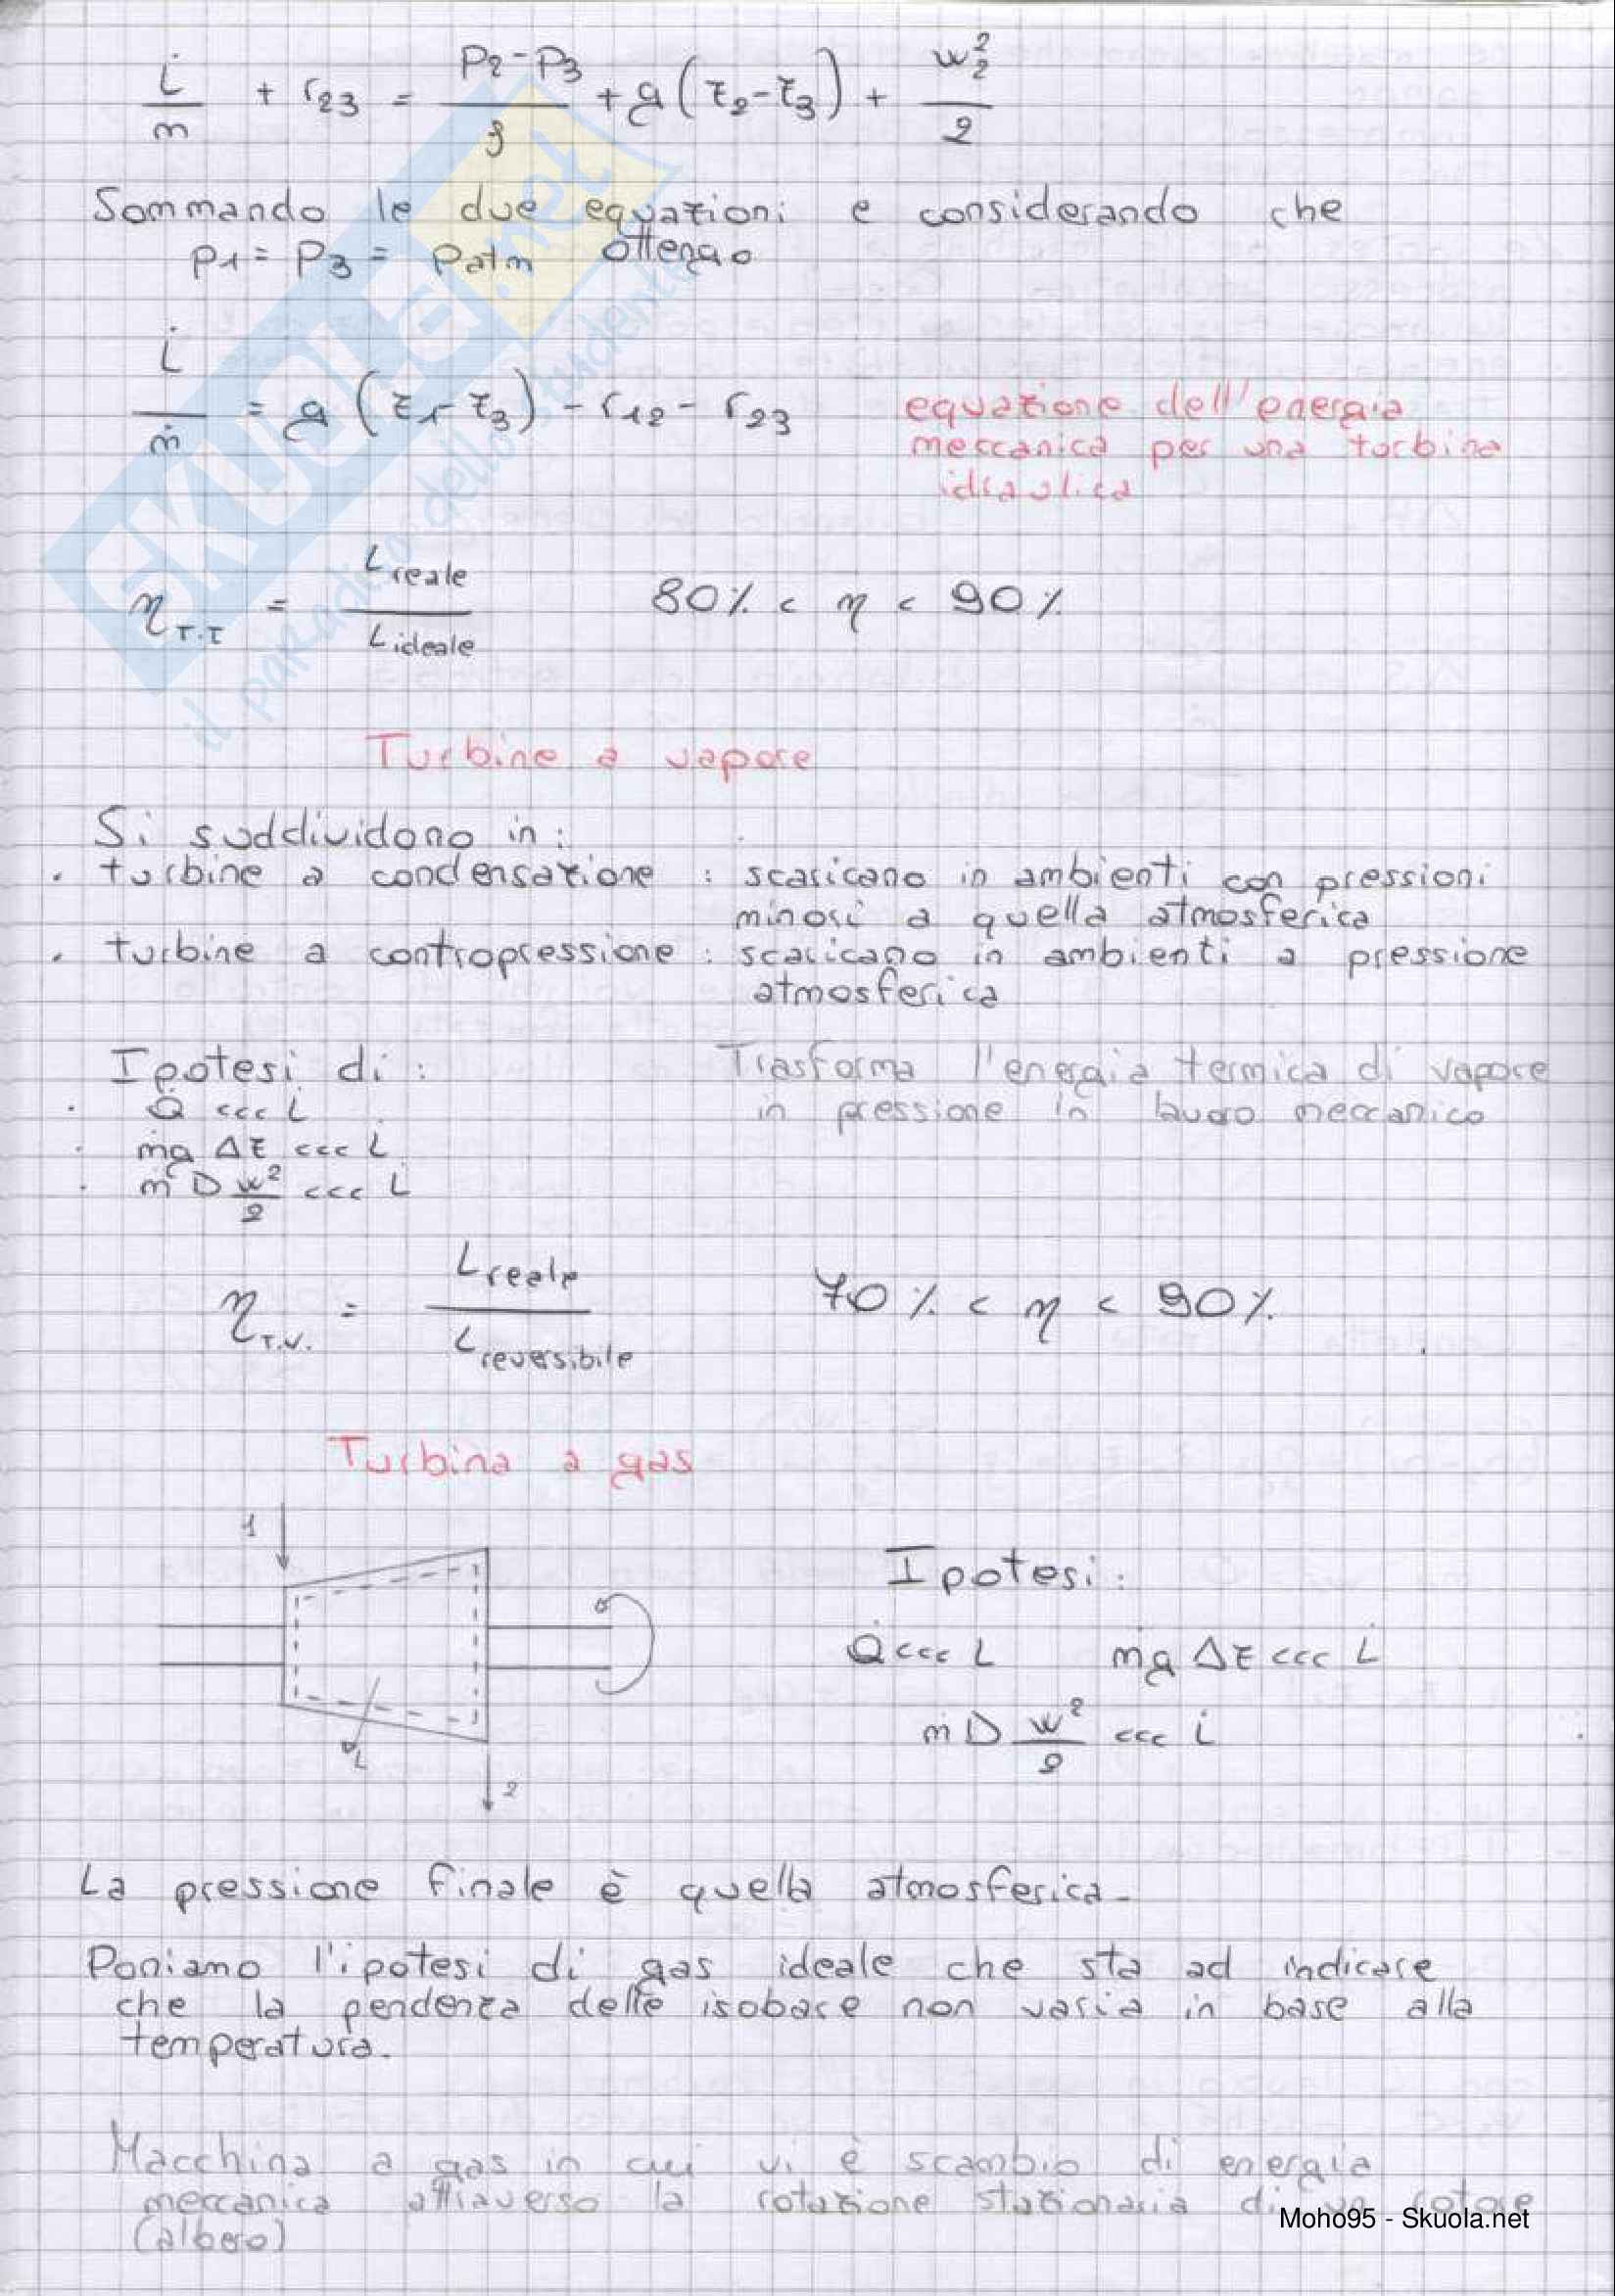 L̇/ṁ + r₂₃ = (p₂-p₃)/ρ + g(z₂-z₃) + w₂²/2
Sommando le due equazioni e considerando che
p₁ = p₃ = patm ottengo
L̇/ṁ = g(z₁-z₃) - r₁₂ - r₂₃
equazione dell'energia
meccanica per una turbina
idraulica
η T.I = L reale / L ideale
80% < η < 90%
Turbine a vapore
Si suddividono in:
• turbine a condensazione : scaricano in ambienti con pressioni
minori a quella atmosferica
• turbine a contropressione : scaricano in ambienti a pressione
atmosferica
Ipotesi di :
• Q <<< L
• ṁg Δz <<< L
• ṁ D w²/2 <<< L
Trasforma l'energia termica di vapore
in pressione in lavoro meccanico
η T.V. = L reale / L reversibile
70% < η < 90%
Turbina a gas
1
L
2
Ipotesi:
Q̇ <<< L ṁg Δz <<< L̇
ṁ D w²/2 <<< L̇
La pressione finale è quella atmosferica.
Poniamo l'ipotesi di gas ideale che sta ad indicare
che la pendenza delle isobare non varia in base alla
temperatura.
Macchina a gas in cui vi è scambio di energia
meccanica attraverso la rotazione stazionaria di un rotore
(albero)
Moho95 - Skuola.net
SKUOLA.net
il paradiso dello studente